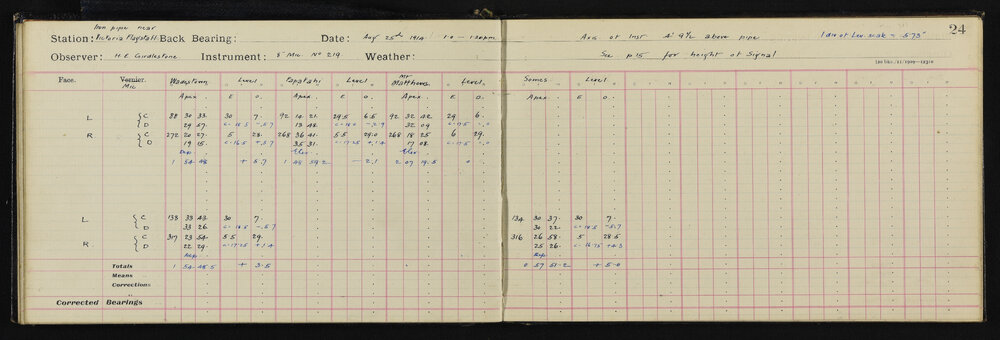 Iron pipe near 24
Station: Victoria Flagstaff. Back Bearing: Date: Aug 25th 1914 1.0 - 1.30pm Axis of Inst 4' 9½ above pipe 1 div of Lev. scale = 5.73"
Observer: H.E. Girdlestone Instrument: 5" Mic No 219 Weather: See p15 for height of Signal
Face. Vernier. Mic Wadestown Level Papatahi Level Mt Matthews Level Somes Level
Apex. E O. Apex. E O. Apex. E O. Apex. E O.
L { C 88 30 33. 30 7. 92 14 21. 29.5 6.5 92 32 42 29 6.
D 29 57. c-18.5 -5.7 13 48. c-18.0 -2.9 32 09 c-17.5 -.0
R { C 272 20 27. 5 28. 268 36 41. 5.5 29.0 268 18 25 6 29.
D 19 15. c-16.5 +5.7 35 31. c-17.25 +1.4 17 08. c-17.5 -.0
Dep Elev Elev
1 54 48 + 5.7 1 48 59.2 - 2.1 2 07 19.5 0
L { C 133 33 43. 30 7. 134 30 37. 30 7.
D 33 26 c-18.5 -5.7 30 22. c-18.5 -5.7
R { C 317 23 54. 5.5 29. 316 26 58. 5 28.5
D 22 29. c-17.25 +1.4 25 26. c-16.75 +4.3
Dep. Dep
Totals 1 54 45.5 + 3.5 0 57 51.2 + 5.0
Means
Corrections
Corrected Bearings